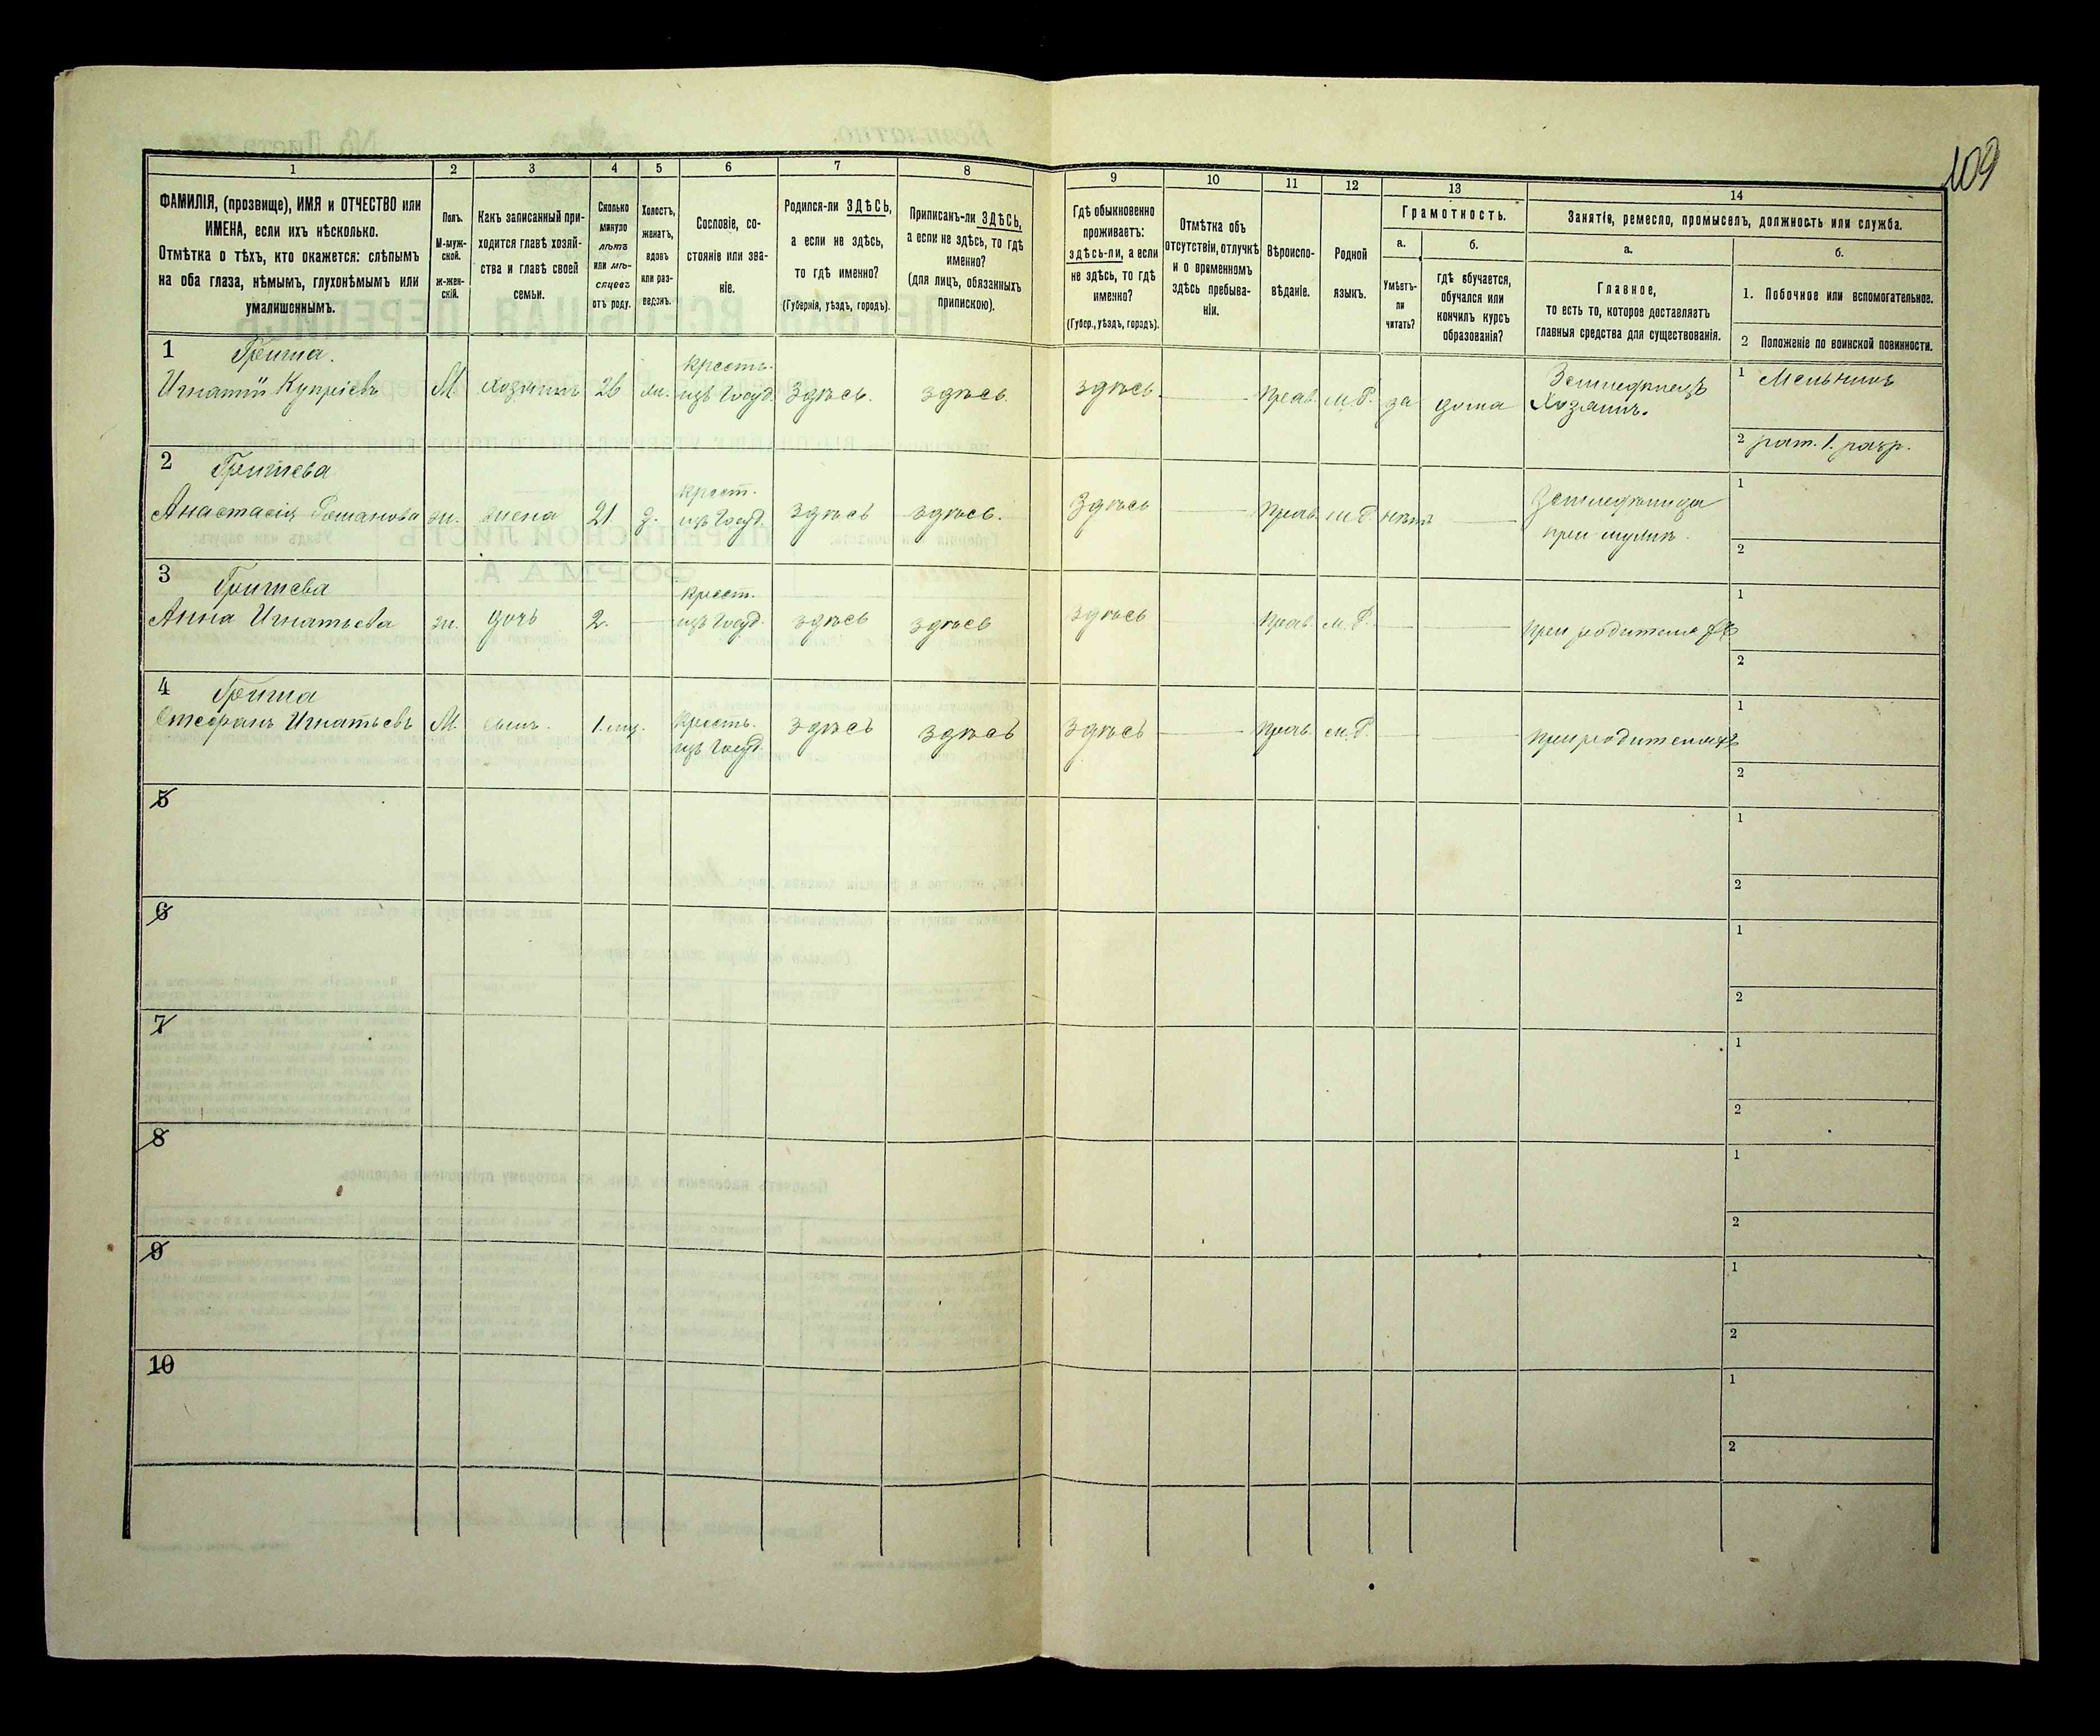 109
1
ФАМИЛІЯ, (прозвище), ИМЯ и ОТЧЕСТВО или
ИМЕНА, если ихъ нѣсколько.
Отмѣтка о тѣхъ, кто окажется: слѣпымъ
на оба глаза, нѣмымъ, глухонѣмымъ или
умалишеннымъ.
2
Полъ.
М-муж-
ской.
ж-жен-
скій.
3
Какъ записанный при-
ходится главѣ хозяй-
ства и главѣ своей
семьи.
4
Сколько
минуло
лѣтъ
или мѣ-
сяцевъ
отъ роду.
5
Холостъ,
женатъ,
вдовъ
или раз-
веденъ.
6
Сословіе, со-
стояніе или зва-
ніе.
7
Родился-ли ЗДѢСЬ,
а если не здѣсь,
то гдѣ именно?
(Губернія, уѣздъ, городъ).
8
Приписанъ-ли ЗДѢСЬ,
а если не здѣсь, то гдѣ
именно?
(для лицъ, обязанныхъ
припискою).
9
Гдѣ обыкновенно
проживаетъ:
здѣсь-ли, а если
не здѣсь, то гдѣ
именно?
(Губер., уѣздъ, городъ).
10
Отмѣтка объ
отсутствіи, отлучкѣ
и о временномъ
здѣсь пребыва-
ніи.
11
Вѣроиспо-
вѣданіе.
12
Родной
языкъ.
13
Грамотность.
а.
Умѣетъ-
ли
читать?
б.
гдѣ обучается,
обучался или
кончилъ курсъ
образованія?
14
Занятіе, ремесло, промыселъ, должность или служба.
а.
Главное,
то есть то, которое доставляетъ
главныя средства для существованія.
б.
1. Побочное или вспомогательное.
2 Положеніе по воинской повинности.
1 Гриша.
Игнатій Купріевъ М. хозяинъ 26 ж. крестъ. изъ Госуд. Здѣсь. здѣсь. здѣсь. Прав. м.Р. да дома Земледѣлецъ Хозяинъ.
1 Мельникъ
2 рат. 1. разр.
2 Гришева
Анастасія Романова ж. жена 21 з. крест. изъ Госуд. здѣсь здѣсь. Здѣсь Прав. м.Р. нѣтъ
при мужѣ.
1
2
3 Гришева
Анна Игнатьева ж. дочь 2. крест. изъ Госуд. здѣсь здѣсь здѣсь Прав. м.Р. при родителяхъ
1
2
4 Гриша
Стефанъ Игнатьевъ М. сынъ. 1 мц. крестъ. изъ Госуд. здѣсь здѣсь здѣсь Прав. м.Р. при родителяхъ
1
2
5
1
2
6
1
2
7
1
2
8
1
2
9
1
2
10
1
2